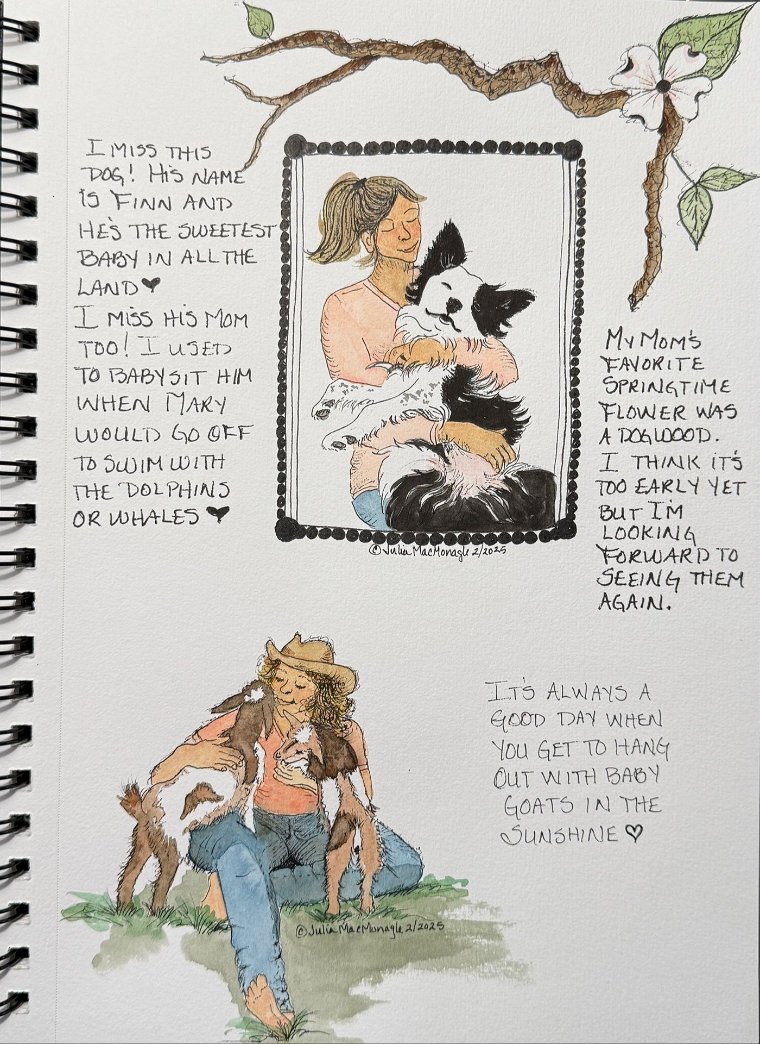 I MISS THIS
DOG! HIS NAME
IS FINN AND
HE'S THE SWEETEST
BABY IN ALL THE
LAND ♥
I MISS HIS MOM
TOO! I USED
TO BABYSIT HIM
WHEN MARY
WOULD GO OFF
TO SWIM WITH
THE DOLPHINS
OR WHALES ♥
© Julia MacMonagle 2/2025
MY MOM'S
FAVORITE
SPRINGTIME
FLOWER WAS
A DOGWOOD.
I THINK IT'S
TOO EARLY YET
BUT I'M
LOOKING
FORWARD TO
SEEING THEM
AGAIN.
IT'S ALWAYS A
GOOD DAY WHEN
YOU GET TO HANG
OUT WITH BABY
GOATS IN THE
SUNSHINE ♡
© Julia MacMonagle 2/2025